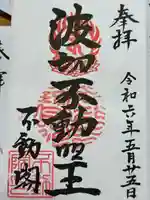 奉拝
令和六年五月廿五日
波切不動明王
不動閣